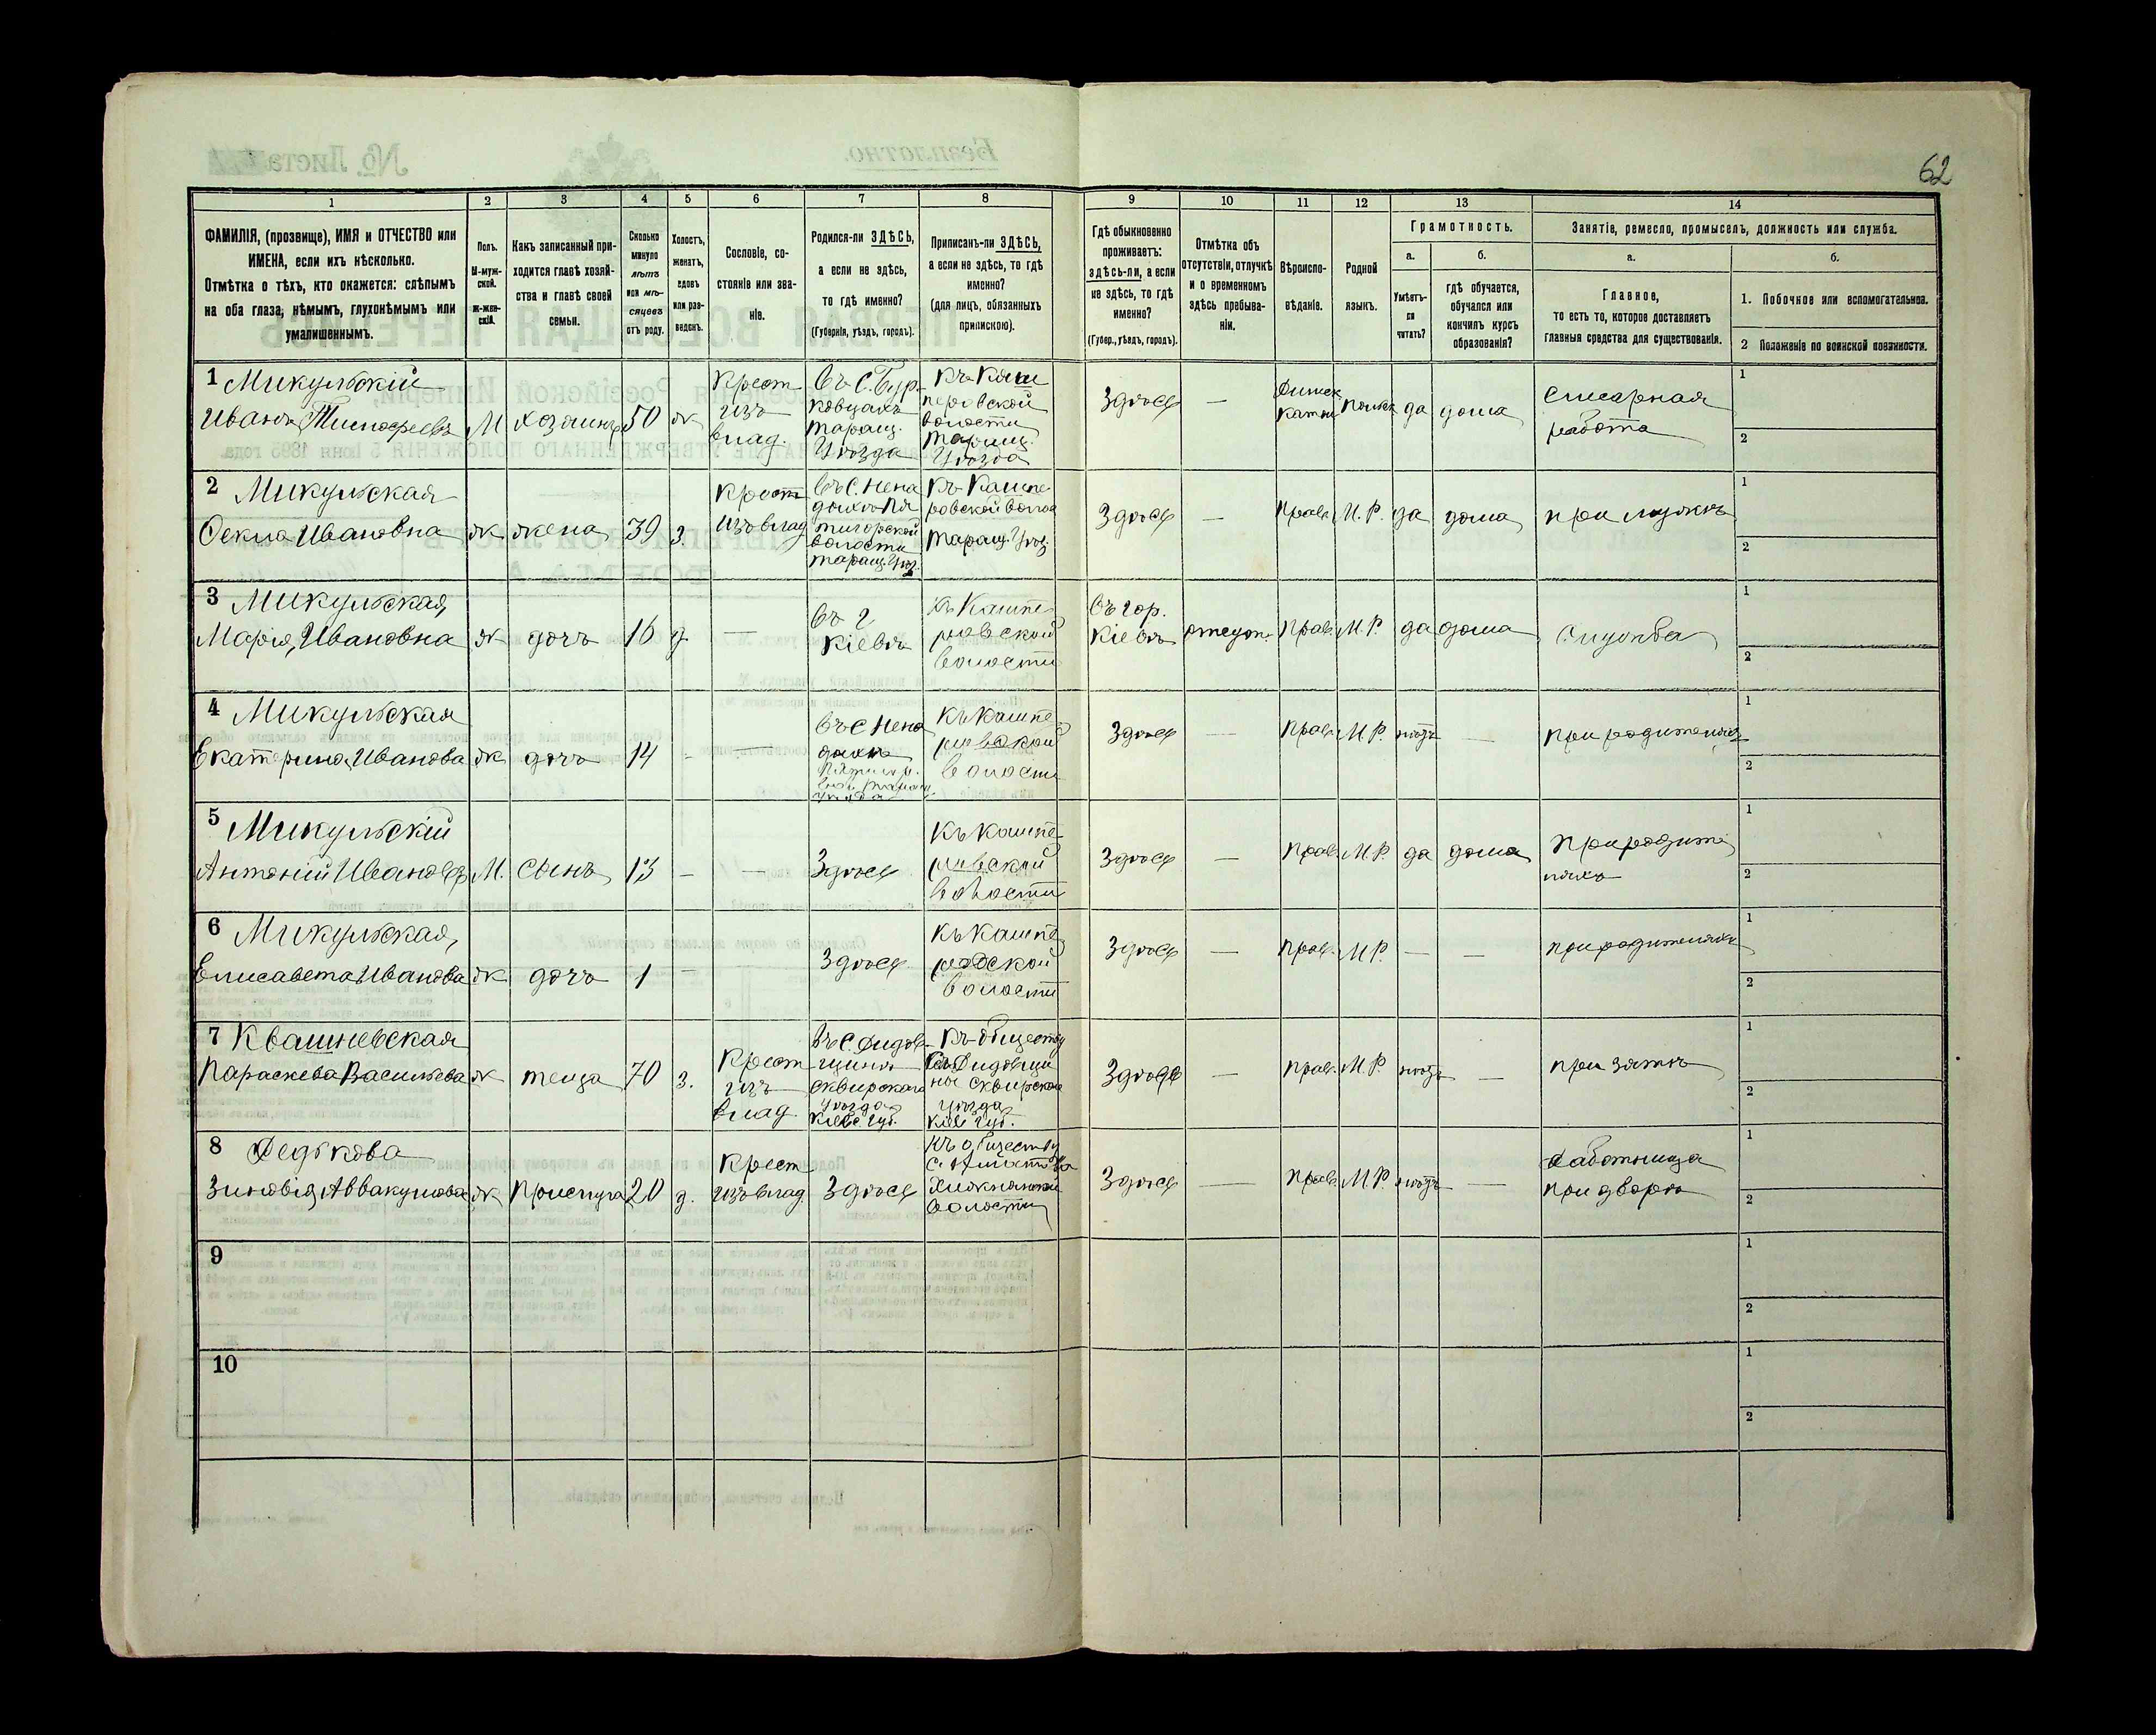 62
1
2
3
4
5
6
7
8
9
10
11
12
13
14
ФАМИЛІЯ, (прозвище), ИМЯ и ОТЧЕСТВО или
ИМЕНА, если ихъ нѣсколько.
Отмѣтка о тѣхъ, кто окажется: слѣпымъ
на оба глаза, нѣмымъ, глухонѣмымъ или
умалишеннымъ.
Полъ.
М-муж-
ской.
Ж-жен-
скій.
Какъ записанный при-
ходится главѣ хозяй-
ства и главѣ своей
семьи.
Сколько
минуло
лѣтъ
или мѣ-
сяцевъ
отъ роду.
Холостъ,
женатъ,
вдовъ
или раз-
веденъ.
Сословіе, со-
стояніе или зва-
ніе.
Родился-ли ЗДѢСЬ,
а если не здѣсь,
то гдѣ именно?
(Губернія, уѣздъ, городъ).
Приписанъ-ли ЗДѢСЬ,
а если не здѣсь, то гдѣ
именно?
(для лицъ, обязанныхъ
припискою).
Гдѣ обыкновенно
проживаетъ:
здѣсь-ли, а если
не здѣсь, то гдѣ
именно?
(Губер., уѣздъ, городъ).
Отмѣтка объ
отсутствіи, отлучкѣ
и о временномъ
здѣсь пребыва-
ніи.
Вѣроиспо-
вѣданіе.
Родной
языкъ.
Грамотность.
а.
Умѣетъ-
ли
читать?
б.
гдѣ обучается,
обучался или
кончилъ курсъ
образованія?
Занятіе, ремесло, промыселъ, должность или служба.
а.
Главное,
то есть то, которое доставляетъ
главныя средства для существованія.
б.
1. Побочное или вспомогательное.
2 Положеніе по воинской повинности.
1 Микульскій
Иванъ Тимофеевъ
М
хозяинъ
50
ж
Крест
изъ
влад.
Въ С. Бур-
ковцахъ
таращ.
Уѣзда
Къ Каш
перовской
волости
Таращ.
Уѣзда
Здѣсь
—
Римск
катол
польск
да
дома
Слесарная
работа
1
2
2 Микульская
Фекла Ивановна
ж
жена
39
з.
Крест
изъ влад
Въ С. Нена
дыхѣ Пя
тигорской
волости
таращ. Уѣз.
Къ Кашпе
ровской воло
таращ. Уѣз.
Здѣсь
—
Прав.
М. Р.
да
дома
при мужѣ
1
2
3 Микульская
Марія Ивановна
ж
дочь
16
д.
—
Въ г.
Кіевѣ
Къ Кашпе-
ровской
волости
Въ гор.
Кіевѣ
отсут.
Прав.
М. Р.
да
дома
Служба
1
2
4 Микульская
Екатерина Иванова
ж
дочь
14
-
—
Въ С Нена
дыхѣ
Къ Кашпе-
ровской
волости
Здѣсь
—
Прав.
М. Р.
нѣтъ
—
При родителяхъ
1
2
5 Микульскій
Антоній Ивановъ
М.
сынъ
13
-
—
Здѣсь
Къ Кашпе-
ровской
волости
Здѣсь
—
Прав.
М. Р.
да
дома
При родите
ляхъ
1
2
6 Микульская
Елисавета Иванова
ж
дочь
1
-
Здѣсь
Къ Кашпе-
ровской
волости
Здѣсь
—
Прав.
М. Р.
—
—
при родителяхъ
1
2
7 Квашневская
Параскева Васильева
ж
теща
70
з.
Крест
изъ
влад
Въ С. Дидов-
щинѣ
сквирскаго
Уѣзда
Кіевс. губ.
Къ обществу
С. Дидовщи
ны Сквирскаго
Уѣзда
Кіев губ.
Здѣсь
—
Прав.
М. Р.
нѣтъ
—
при зятѣ
1
2
8 Федькова
Зиновія Аввакумова
ж
прислуга
20
д.
Крест
изъ влад
Здѣсь
Къ обществу
волости
Здѣсь
—
Прав.
М. Р.
нѣтъ
—
Работница
при дворѣ
1
2
9
1
2
10
1
2